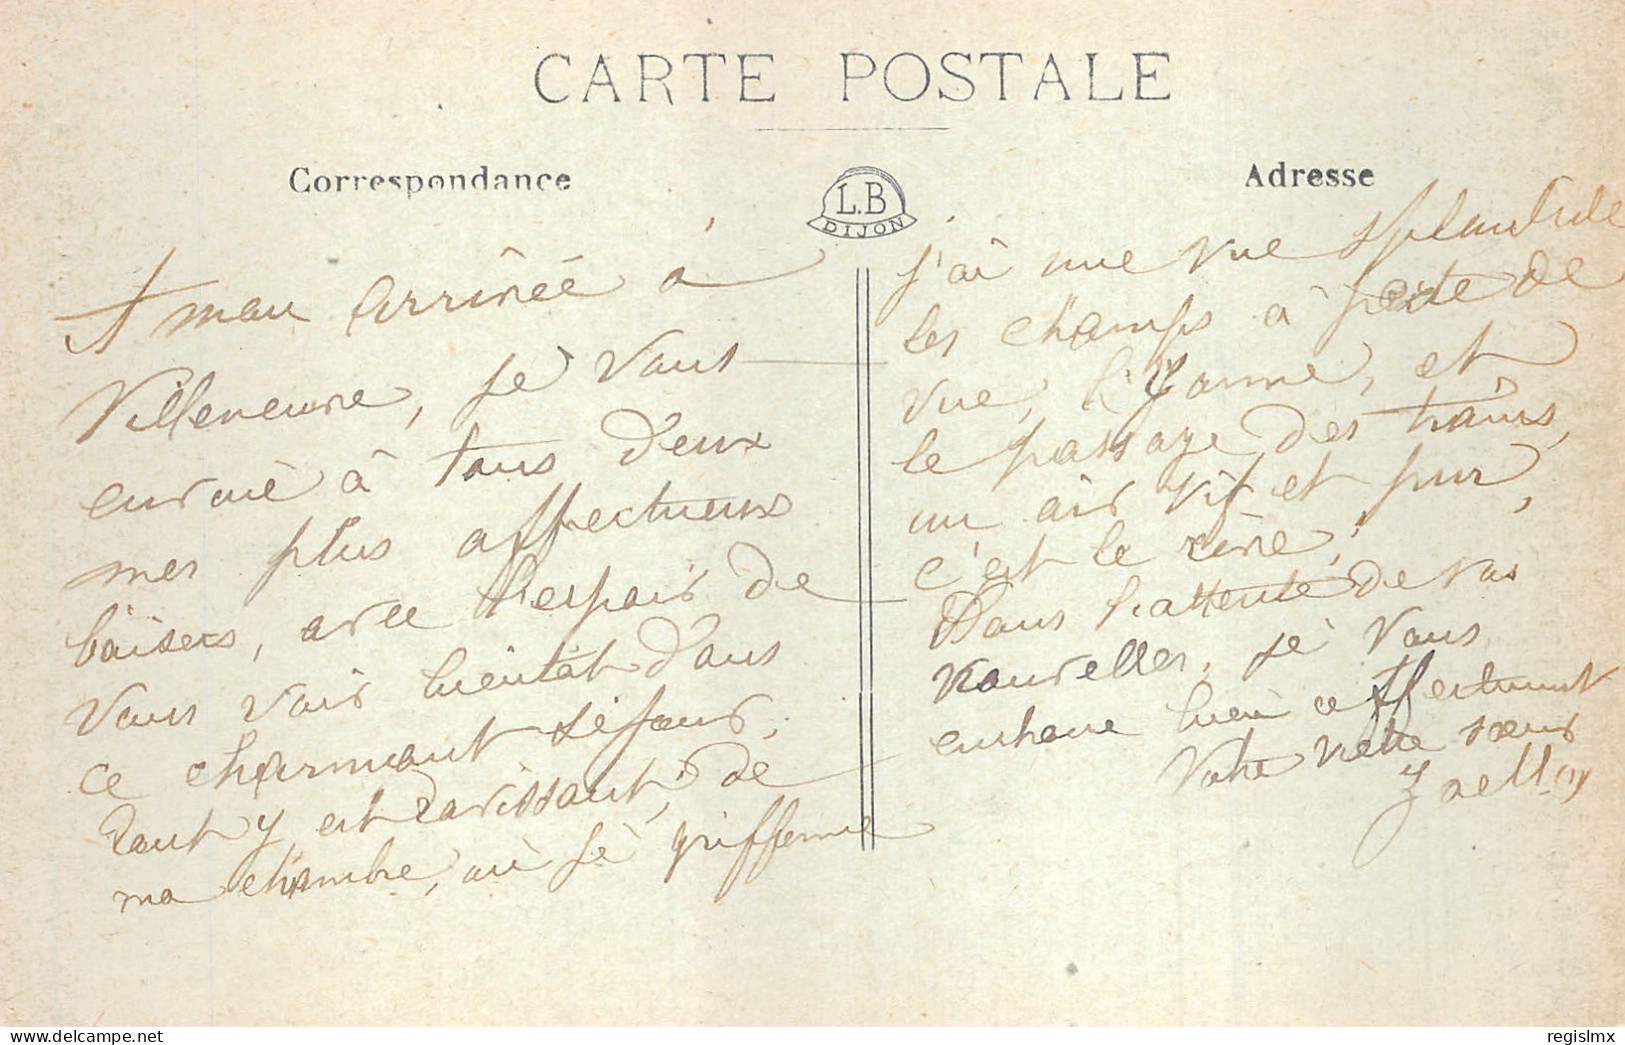 CARTE POSTALE
Correspondance
Adresse
L.B
DIJON
A mon arrivée à
Villeneuve, je vous
envoie à tous deux
mes plus affectueux
baisers, avec l'espoir de
vous voir bientôt dans
ce charmant séjour,
tout y est ravissant, de
ma chambre, où je griffonne
j'ai une vue splendide
les champs à perte de
vue, l'Yonne, et
le passage des trains,
un air vif et pur,
c'est le rêve,
Dans l'attente de vos
nouvelles, je vous
embrasse bien affectueusement
Votre vieille sœur
delcampe.net
regislmx